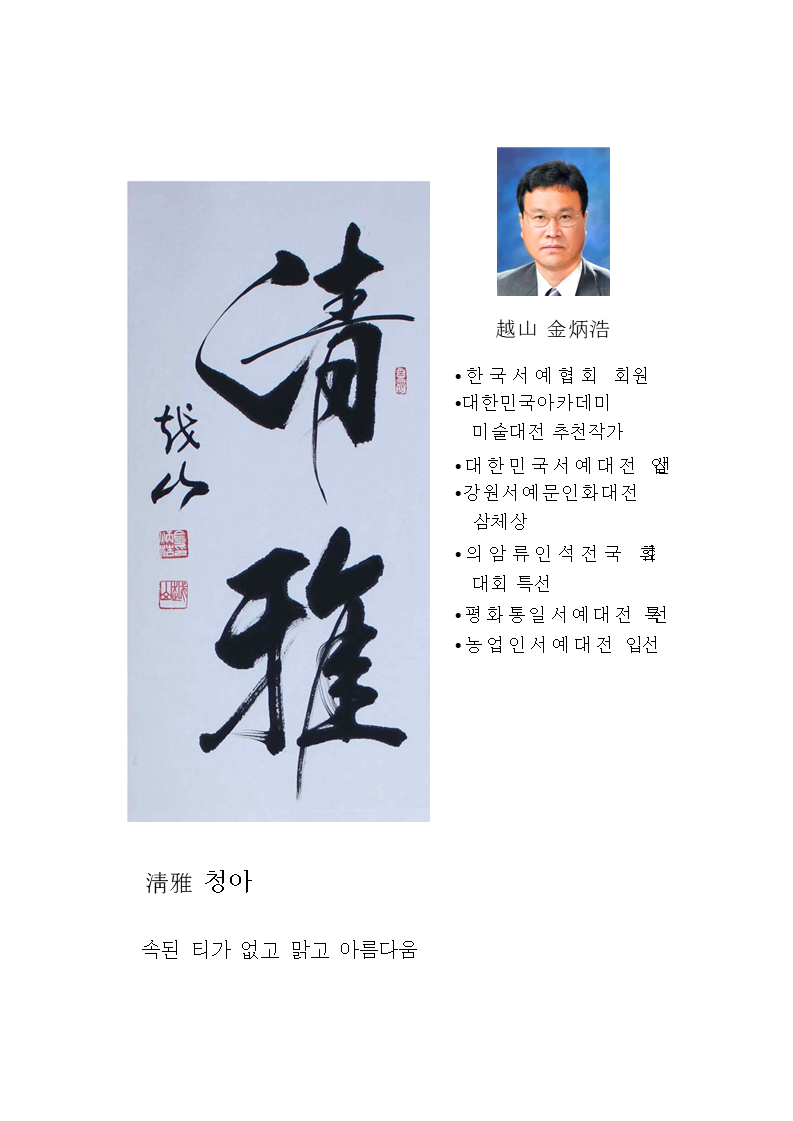 清
雅
越山
越山 金炳浩
•한국서예협회 회원
•대한민국아카데미
미술대전 추천작가
•대한민국서예대전
•강원서예문인화대전
삼체상
•의암류인석전국
대회 특선
•평화통일서예대전 특선
•농업인서예대전 입선
淸雅 청아
속된 티가 없고 맑고 아름다움